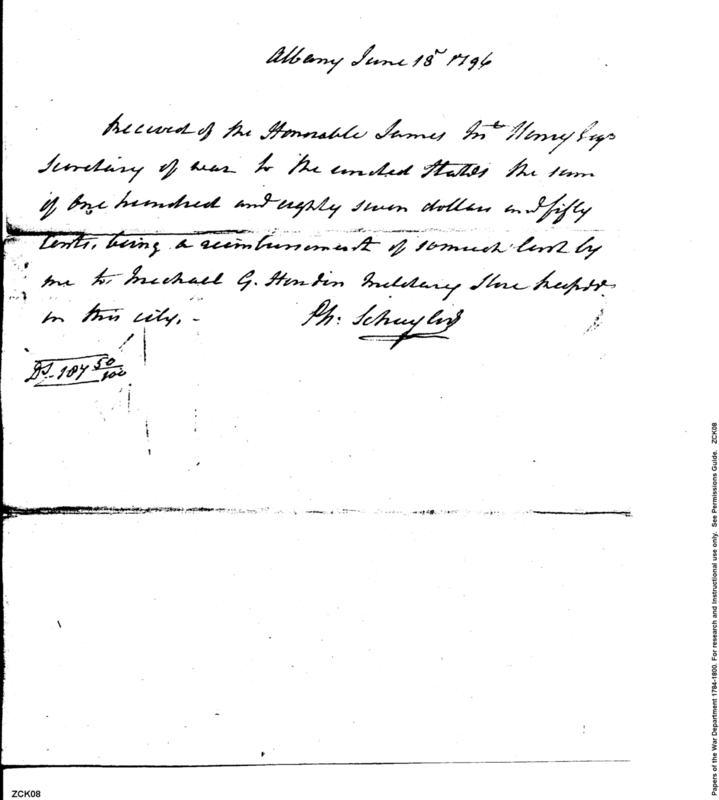 Albany June 18th 1796
Received of the Honorable James Mc Henry Esqr
Secretary of war to the united States the sum
of One hundred and eighty seven dollars and fifty
Cents, being a reimbursement of so much lent by
me to Michael G. Houdin Military Store keeper
in this city. -
Ph: Schuyler
Ds. 187 50/100
Papers of the War Department 1784-1800. For research and Instructional use only. See Permissions Guide. ZCK08
ZCK08